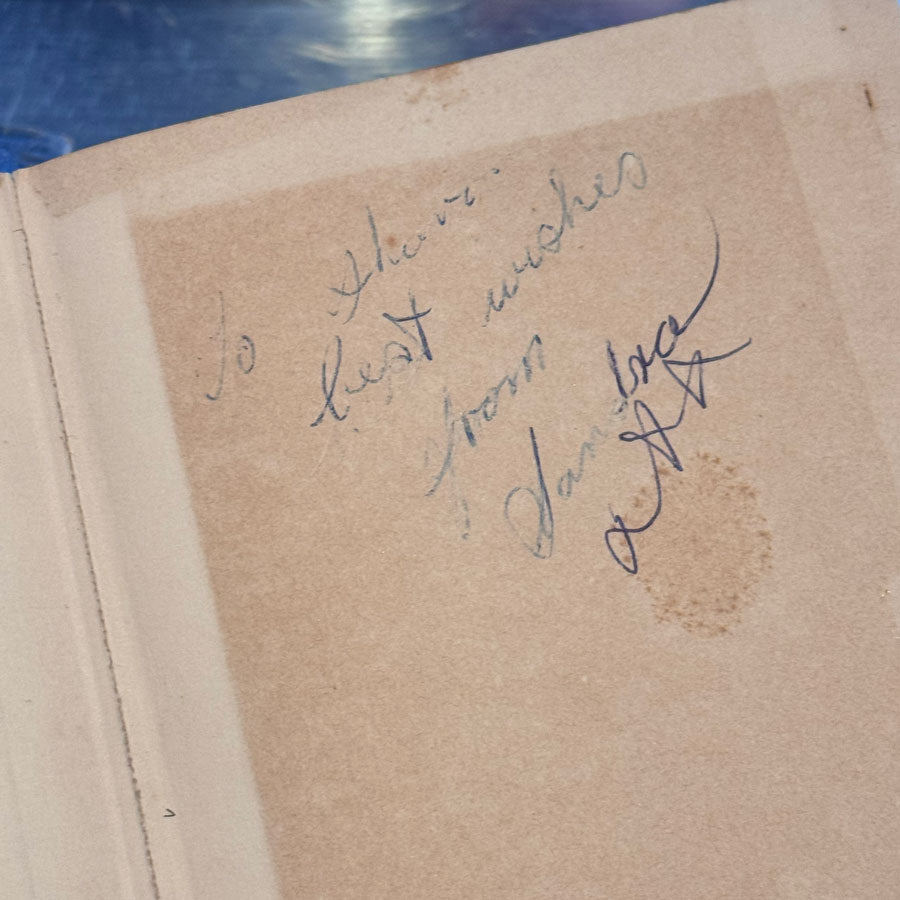 To Shari
best wishes
from
Sandra